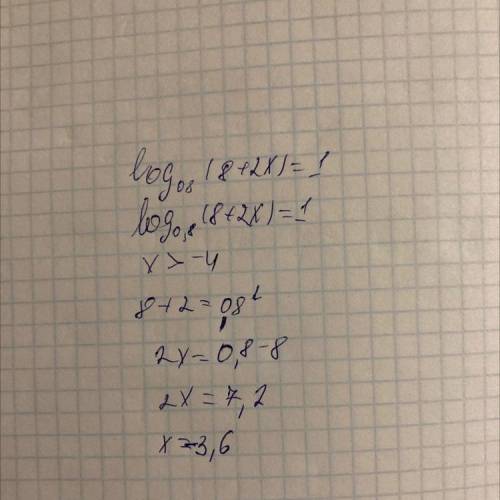 log₀₈(8+2x)=1
log₀,₈(8+2x)=1
x>-4
8+2=0,8¹
2x=0,8-8
2x=7,2
x=-3,6